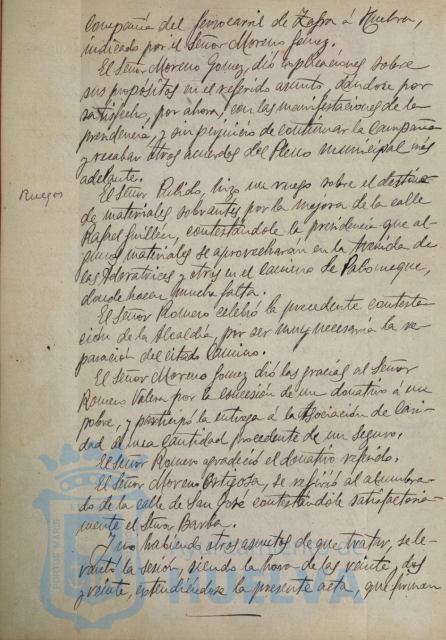 Compañía del ferrocarril de Zafra á Huelva,
indicado por el Señor Moreno Gómez.
El Señor Moreno Gomez, dió explicaciones sobre
sus propósitos en el referido asunto, dándose por
satisfecho, por ahora, con las manifestaciones de la
presidencia, y sin perjuicio de continuar la campaña
y recabar otros acuerdos del Pleno municipal más
adelante.
Ruegos
El Señor Pulido, hizo un ruego sobre el destino
de materiales sobrantes por la mejora de la calle
Rafael Guillén, contestándole la presidencia que al-
gunos materiales se aprovecharán en la Avenida de
las Adoratrices y otros en el camino de Palomeque,
donde hacen mucha falta.
El Señor Romero celebró la precedente contesta-
ción de la Alcaldía, por ser muy necesaria la re-
paración del citado camino.
El Señor Moreno Gomez dió las gracias al Señor
Romero Valera por la concesión de un donativo á un
pobre, y participó la entrega á la Asociación de Cari-
dad de una cantidad procedente de un seguro.
El Señor Romero agradeció el donativo referido.
El Señor Moreno Ortigosa, se refirió al alumbra-
do de la calle de San José contestándole satisfactoria-
mente el Señor Barba.
Y no habiendo otros asuntos de que tratar, se le-
vantó la sesión, siendo la hora de las veinte, dos
y veinte, extendiéndose la presente acta, que firman
HUELVA